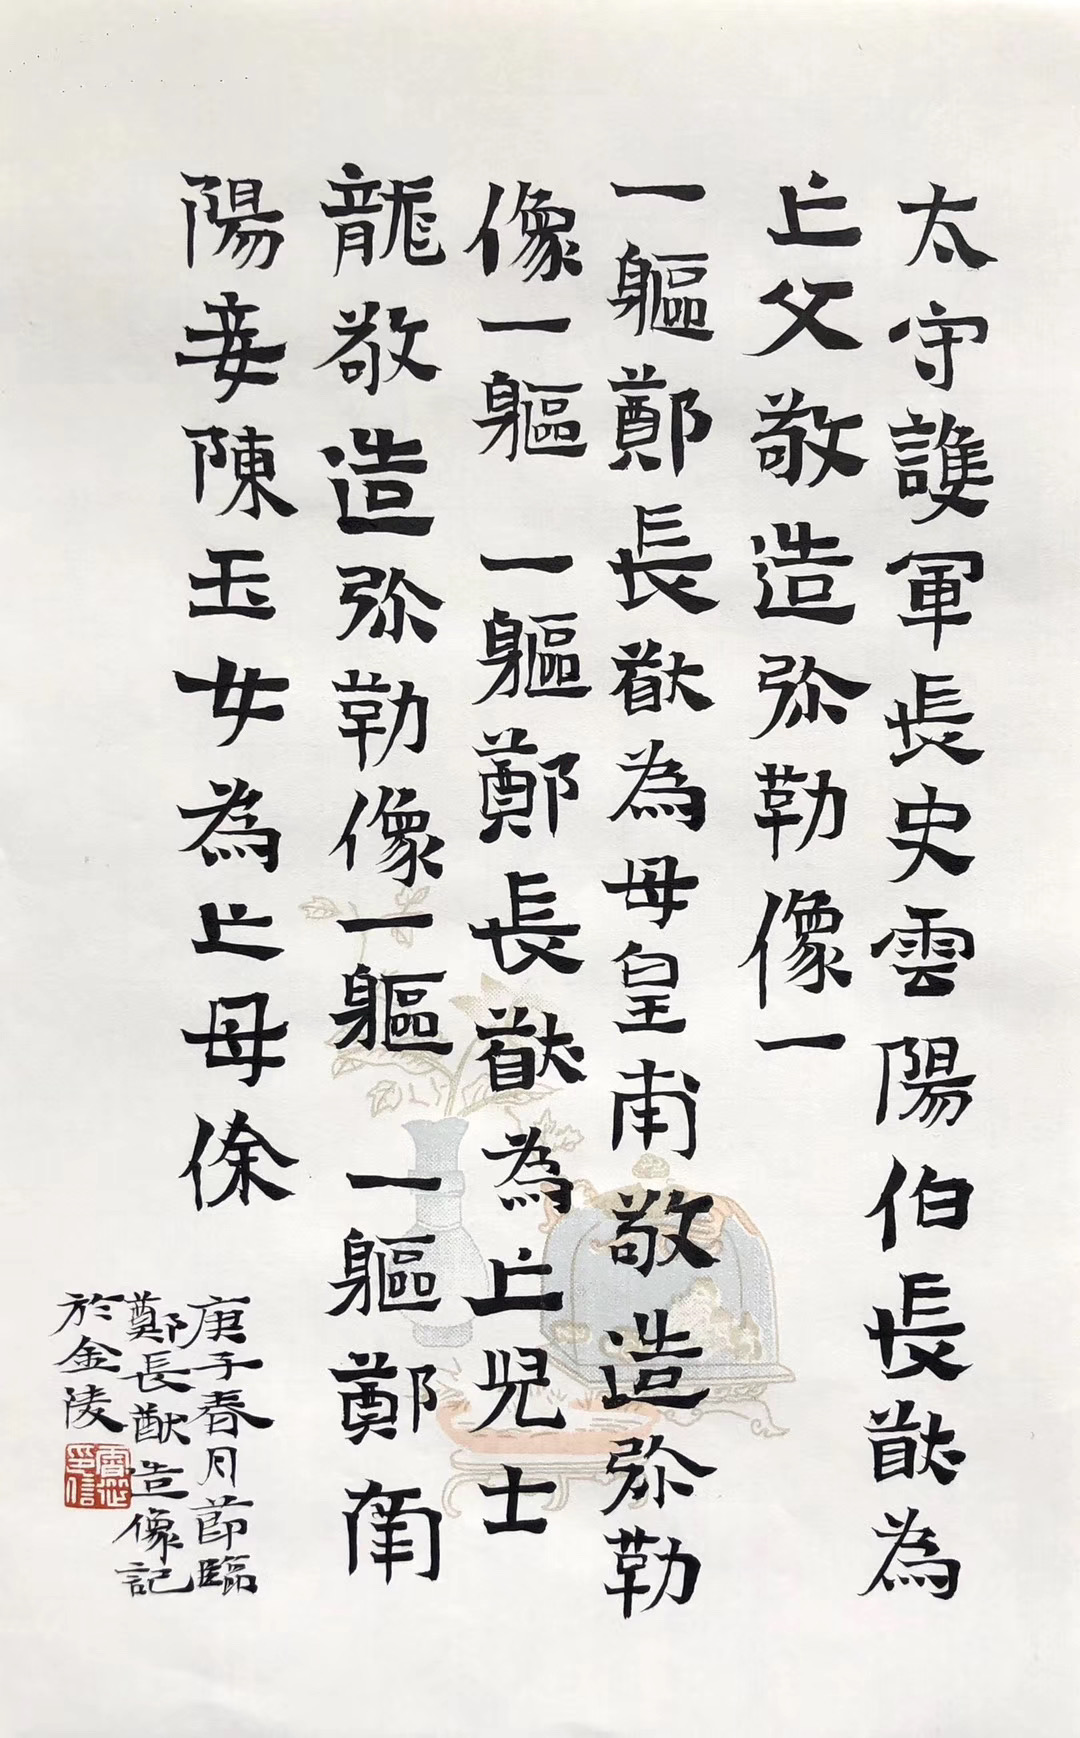 太守護軍長史雲陽伯長猷為
亡父敬造弥勒像一
一軀鄭長猷為母皇甫敬造弥勒
像一軀一軀鄭長猷為亡児士
龍敬造弥勒像一軀一軀鄭南
陽妾陳玉女為亡母徐
庚子春月節臨
鄭長猷造像記
於金陵